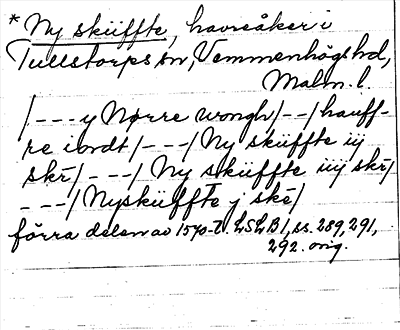 * Ny sküffte, havreåker i
Tullstorps sn, Vemmenhögs hd,
Malm. l.
/---y Nørre wongh/--/hauff-
re iordt/---/Ny sküffte iij
skē/---/Ny sküffte iiij skē/
---/Nysküffte j skē/
förra delen av 1570-t. LSLB1, ss. 289, 291,
292. orig.